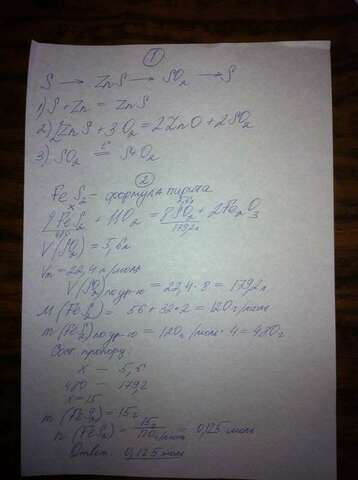 1
S → ZnS → SO₂ → S
1) S + Zn = ZnS
2) 2ZnS + 3O₂ = 2ZnO + 2SO₂
3) SO₂ = S + O₂
2
FeS₂ – формула пирита
x 5,6л
4FeS₂ + 11O₂ = 8SO₂ + 2Fe₂O₃
480 179,2л
V(SO₂) = 5,6л
Vₘ = 22,4 л/моль
V(SO₂) по ур-ю = 22,4 · 8 = 179,2л
M(FeS₂) = 56 + 32·2 = 120 г/моль
m(FeS₂) по ур-ю = 120 г/моль · 4 = 480г
Сост пропорц:
x — 5,6
480 — 179,2
x = 15
m(FeS₂) = 15г
n(FeS₂) = 15г/120г/моль = 0,125 моль
Ответ: 0,125 моль